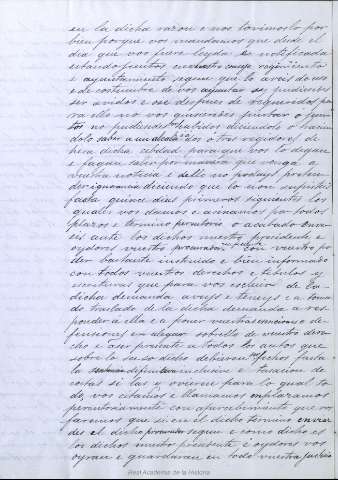 en la dicha razon e nos tovimoslo por
bien porque vos mandamos que desde el
dia que vos fuere leyda e notificada
estando juntos en vuestro conçejo regimiento
e ayuntamiento segun que lo aveis de uso
e de costumbre de vos ayuntar se pudierdes
ser avidos e sy despues de requeridos pa
ra ello no vos quisierdes juntar o jun
tos no pudierdes ser habidos diziendolo o hazien
dolo saber a un alcalde o dos o tres regidores de
desa dicha cibdad para que vos lo digan
e fagan saber por manera que venga a
vuestra noticia e dello no podays preten
der ignorancia diciendo que lo non supistes
fasta quince dias primeros siguientes los
quales vos damos e asinamos por todos
plazos e termino perentorio e acabado enviè
eis ante los dichos nuestro presidente e
oydores vuestro procurador con vuestro po
der bastante instruido e bien informado
con todos vuestros derechos e titulos y
escrituras que para vos escluir de la
dicha demanda aveys e teneys e a tomar
do traslado de la dicha demanda a res
ponder á ella e a poner vuestras exenciones e de
fensiones e a alegar sobrello de vuestro dere
cho e a ser presente a todos los autos que
sobre lo suso dicho debieren ser fechos fasta
la sentencia definitiva inclusive e tasacion de
costas si las y oviere para lo qual to
do vos citamos e llamamos e emplazamos
perentoriamente con apercebimiento que vos
facemos que si en el dicho termino enviar
des el dicho procurador segun e como dicho es
los dichos nuestro presidente é oydores vos
oyran e guardaran en todo vuestra justicia
Real Academia de la Historia